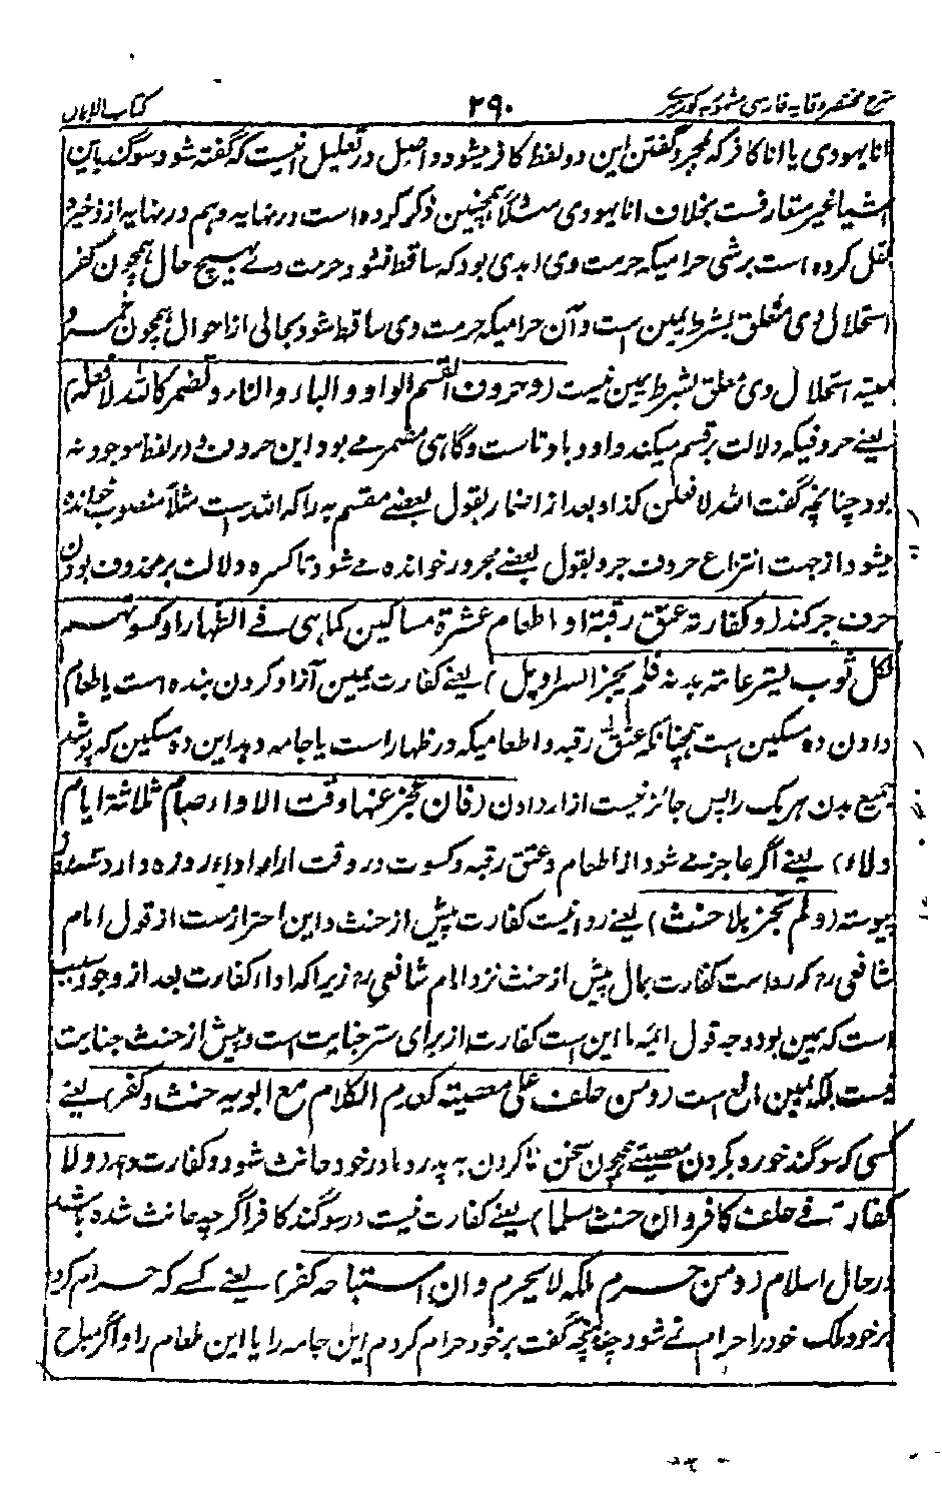 شرح مختصر وقایه فارسی مشهور به کور میری ۲۹۰ کتاب الایمان
انا یهودی یا انا کافر که بمجرد گفتن این دو لفظ کافر میشود و اصل در تعلیل انیست که گفته شود سوگند باین
اشیا غیر متعارفست بخلاف انا یهودی مثلا همچنین ذکر کرده است در نهایه و هم در نهایه از ذخیره
نقل کرده است هر شی حرامیکه حرمت وی ابدی بود که ساقط نشود حرمت وے بهیچ حال همچون کفر
استحلال وی معلق بشرط یمین است و آن حرامیکه حرمت وی ساقط شود بحالی از احوال همچون خمر و
میته استحلال وی معلق بشرط یمین نیست (و حروف القسم الواو و الباء و التاء و تضمر کالله لافعله)
یعنے حروفیکه دلالت بر قسم میکند واو و با و تاست و گاهی مضمر مے بود این حروف و در لفظ موجود نه
بود چنانچه گفت الله لافعلن کذا و بعد از اضمار بقول بعضے مقسم به را که الله است مثلا منصوب خوانده
میشود از جهت انتزاع حروف جر و بقول بعضے مجرور خوانده مے شود تا کسره دلالت بر محذوف بودن
حرف جر کند (و کفارته عتق رقبة او اطعام عشرة مساکین کما هی فے الظهار او کسوتهم
لکل ثوب یستر عامة بدنه فلم یجز السراویل) یعنے کفارت یمین آزاد کردن بنده است یا طعام
دادن ده مسکین است چنانکه عتق رقبه و اطعامیکه در ظهار است یا جامه دهد این ده مسکین که پوشد
جمیع بدن هر یک را پس جائز نیست ازار دادن (فان عجز عنها وقت الاداء صام ثلاثة ایام
ولاء) یعنے اگر عاجز مے شود از اطعام و عتق رقبه و کسوت در وقت اراده اداء روزه دارد سه روز
پیوسته (و لم تجز بلا حنث) یعنے روا نیست کفارت پیش از حنث و این احترازست از قول امام
شافعی رح که رواست کفارت بمال پیش از حنث نزد امام شافعی رح زیرا که اداء کفارت بعد از وجود سبب
است که یمین بود و وجه قول ائمه ما این است کفارت از برای ستر جنایت است و پیش از حنث جنایت
نیست بلکه یمین مانع است (و من حلف علی معصیة کعدم الکلام مع ابویه حنث و کفر) یعنے
کسی که سوگند خورد بکردن معصیتے همچون سخن نا کردن به پدر و مادر خود حانث شود و کفارت دهد (و لا
کفارة فے حلف کافر و ان حنث مسلما) یعنے کفارت نیست در سوگند کافر اگر چه حانث شده باشد
در حال اسلام (و من حرم ملکه لا یحرم و ان استباحه کفر) یعنے کسے که حرام کرد
بر خود ملک خود را حرام نے شود چنانچه گفت بر خود حرام کردم این جامه را یا این طعام را و اگر مباح